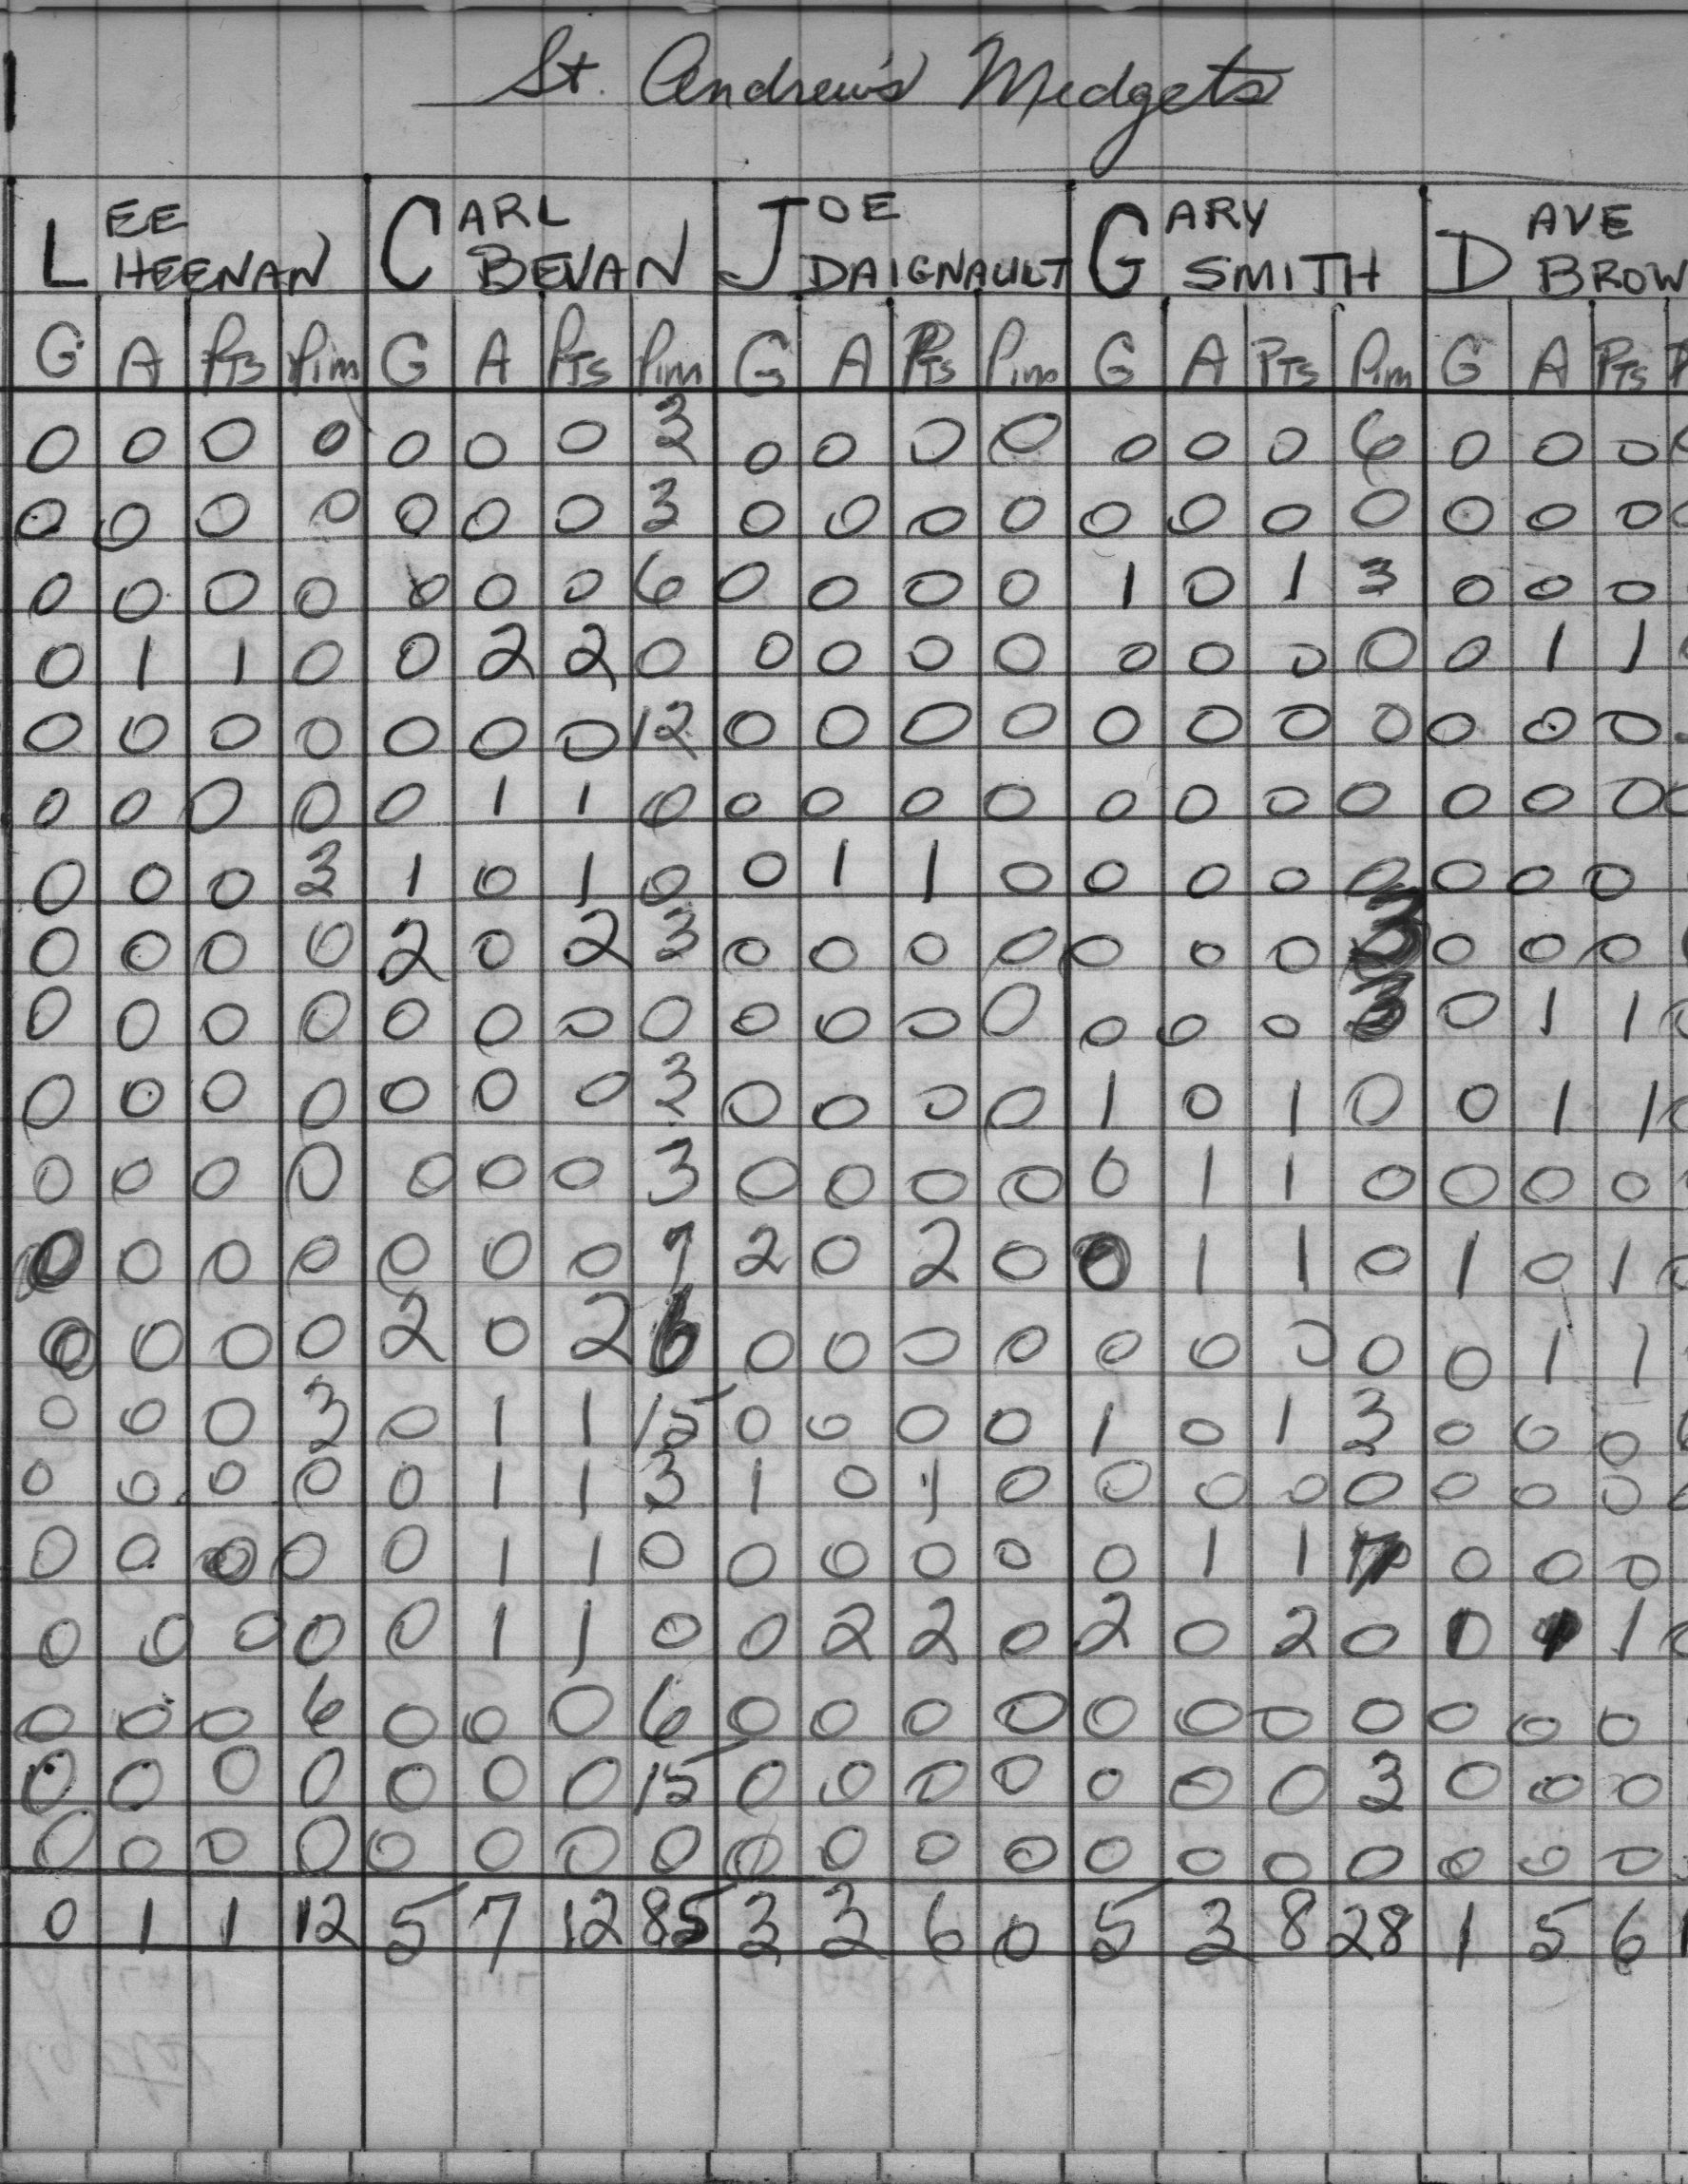 St. Andrew's Midgets
LEE HEENAN CARL BEVAN JOE DAIGNAULT GARY SMITH DAVE BROW
G A Pts Pim G A Pts Pim G A Pts Pim G A Pts Pim G A Pts P
0 0 0 0 0 0 0 3 0 0 0 0 0 0 0 6 0 0 0
0 0 0 0 0 0 0 3 0 0 0 0 0 0 0 0 0 0 0
0 0 0 0 0 0 0 6 0 0 0 0 1 0 1 3 0 0 0
0 1 1 0 0 2 2 0 0 0 0 0 0 0 0 0 0 1 1
0 0 0 0 0 0 0 12 0 0 0 0 0 0 0 0 0 0 0
0 0 0 0 0 1 1 0 0 0 0 0 0 0 0 0 0 0 0
0 0 0 3 1 0 1 0 0 1 1 0 0 0 0 0 0 0 0
0 0 0 0 2 0 2 3 0 0 0 0 0 0 0 3 0 0 0
0 0 0 0 0 0 0 0 0 0 0 0 0 0 0 3 0 1 1
0 0 0 0 0 0 0 3 0 0 0 0 1 0 1 0 0 1 1
0 0 0 0 0 0 0 3 0 0 0 0 0 1 1 0 0 0 0
0 0 0 0 0 0 0 7 2 0 2 0 0 1 1 0 1 0 1
0 0 0 0 2 0 2 6 0 0 0 0 0 0 0 0 0 1 1
0 0 0 3 0 1 1 15 0 0 0 0 1 0 1 3 0 0 0
0 0 0 0 0 1 1 3 1 0 1 0 0 0 0 0 0 0 0
0 0 0 0 0 1 1 0 0 0 0 0 0 1 1 7 0 0 0
0 0 0 0 0 1 1 0 0 2 2 0 2 0 2 0 0 1 1
0 0 0 6 0 0 0 6 0 0 0 0 0 0 0 0 0 0 0
0 0 0 0 0 0 0 15 0 0 0 0 0 0 0 3 0 0 0
0 0 0 0 0 0 0 0 0 0 0 0 0 0 0 0 0 0 0
0 1 1 12 5 7 12 85 3 3 6 0 5 3 8 28 1 5 6